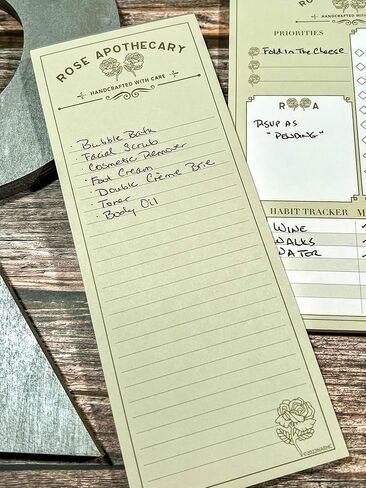 ROSE APOTHECARY
HANDCRAFTED WITH CARE
· Bubble Bath
· Facial Scrub
· Cosmetic Remover
· Foot Cream
· Double Crème Brie
· Toner
· Body Oil
PRIORITIES
Fold In The Cheese
R A
RSVP AS
"PENDING"
HABIT TRACKER M
WINE
WALKS
WATER